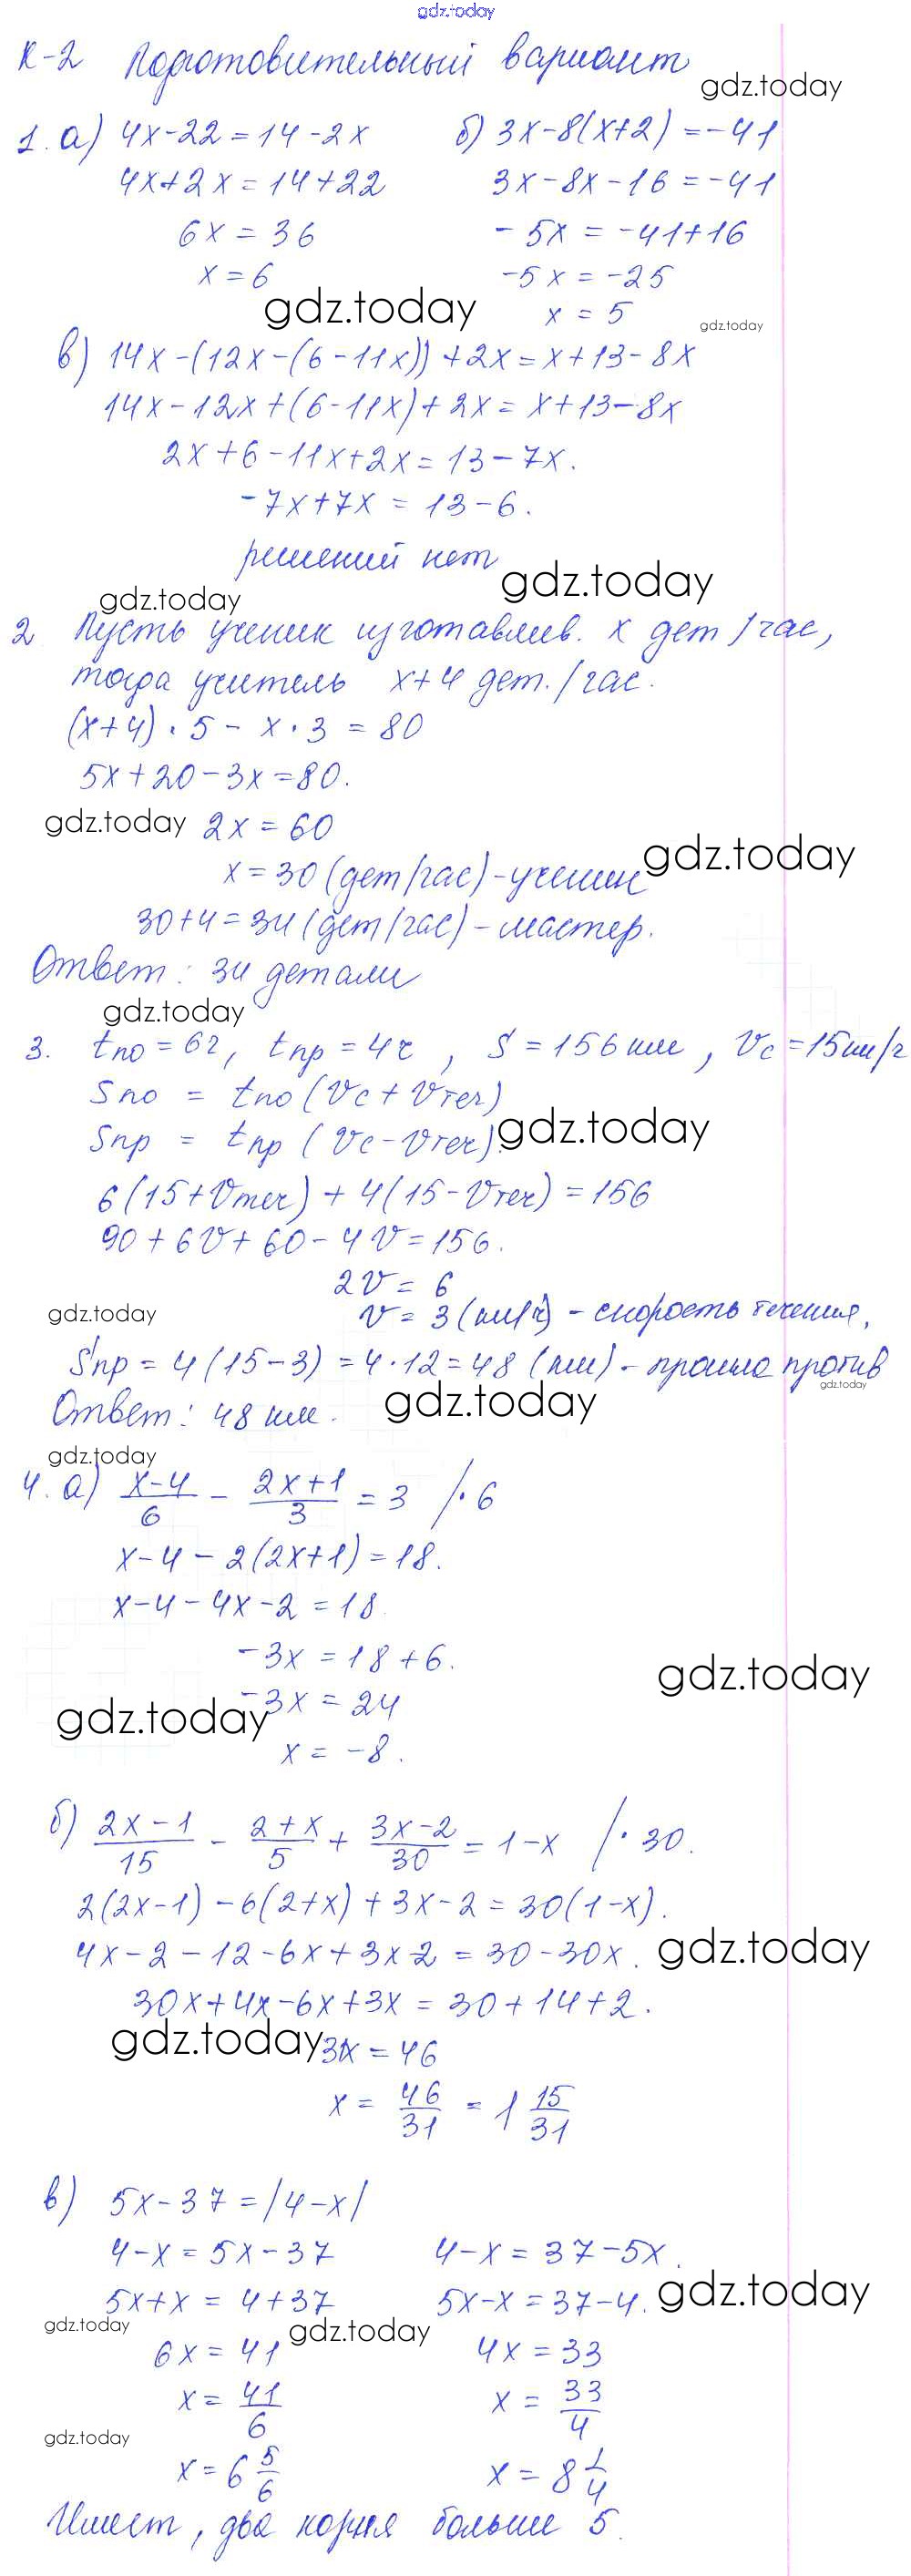 gdz.today
К-2 Подготовительный вариант
gdz.today
1. а) 4x-22=14-2x б) 3x-8(x+2)=-41
4x+2x=14+22 3x-8x-16=-41
6x=36 -5x=-41+16
x=6 -5x=-25
gdz.today x=5
gdz.today
в) 14x-(12x-(6-11x))+2x=x+13-8x
14x-12x+(6-11x)+2x=x+13-8x
2x+6-11x+2x=13-7x.
-7x+7x=13-6.
решений нет
gdz.today
gdz.today
2 Пусть ученик изготавлив. x дет/час,
тогда учитель x+4 дет./час.
(x+4)·5-x·3=80
5x+20-3x=80.
gdz.today 2x=60
gdz.today
x=30(дет/час)-ученик
30+4=34(дет/час)-мастер.
Ответ: 34 детали
gdz.today
3. tпо=6ч, tпр=4ч, S=156км, Vс=15км/ч
Sпо = tпо(Vс+Vтеч)
Sпр = tпр(Vс-Vтеч) gdz.today
6(15+Vтеч)+4(15-Vтеч)=156
90+6V+60-4V=156.
2V=6
gdz.today V=3(км/ч)-скорость течения.
Sпр=4(15-3)=4·12=48(км)-прошла против
gdz.today
Ответ: 48 км. gdz.today
gdz.today
4. а) (x-4)/6 - (2x+1)/3 = 3 /·6
x-4-2(2x+1)=18.
x-4-4x-2=18
-3x=18+6.
gdz.today
-3x=24
gdz.today
x=-8.
б) (2x-1)/15 - (2+x)/5 + (3x-2)/30 = 1-x /·30.
2(2x-1)-6(2+x)+3x-2=30(1-x).
4x-2-12-6x+3x-2=30-30x. gdz.today
30x+4x-6x+3x=30+14+2.
gdz.today 31x=46
x = 46/31 = 1 15/31
в) 5x-37=|4-x|
4-x=5x-37 4-x=37-5x.
5x+x=4+37 5x-x=37-4. gdz.today
gdz.today gdz.today
6x=41 4x=33
x=41/6 x=33/4
gdz.today
x=6 5/6 x=8 1/4
Имеет, два корня больше 5.